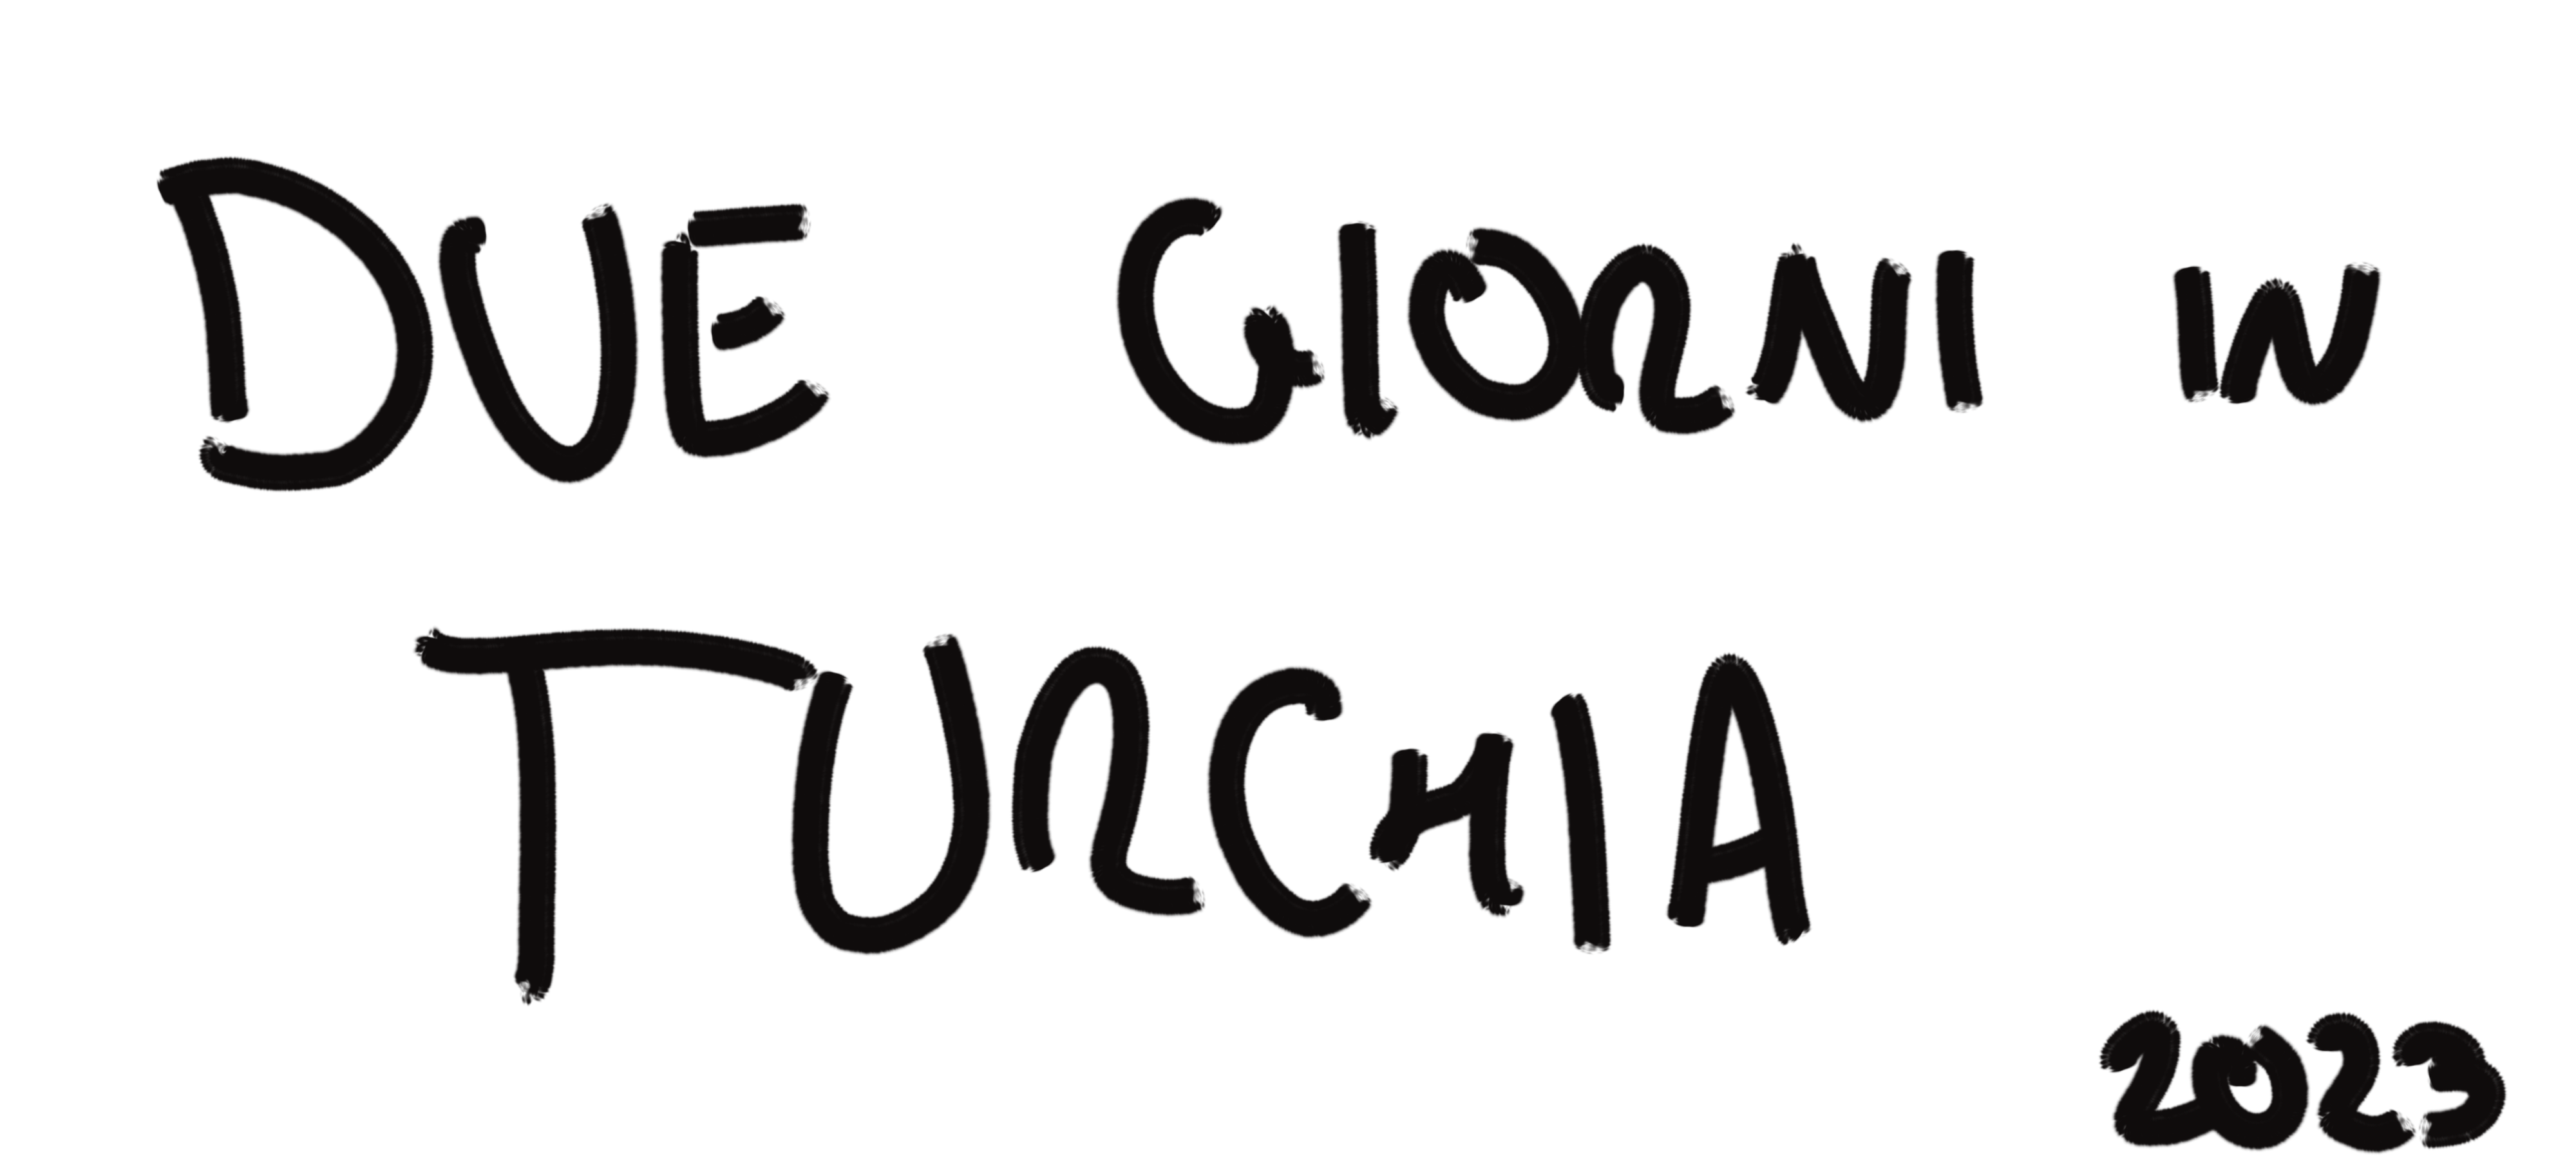 DUE GIORNI IN
TURCHIA
2023